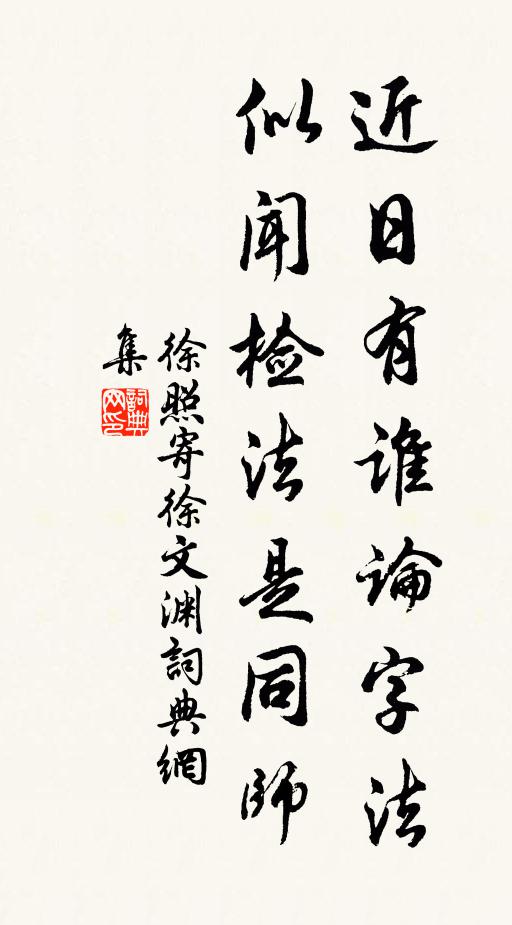 近日有誰論字法
似闻檢法是同師
徐照寄徐文渊詞典網
集
詞典网印